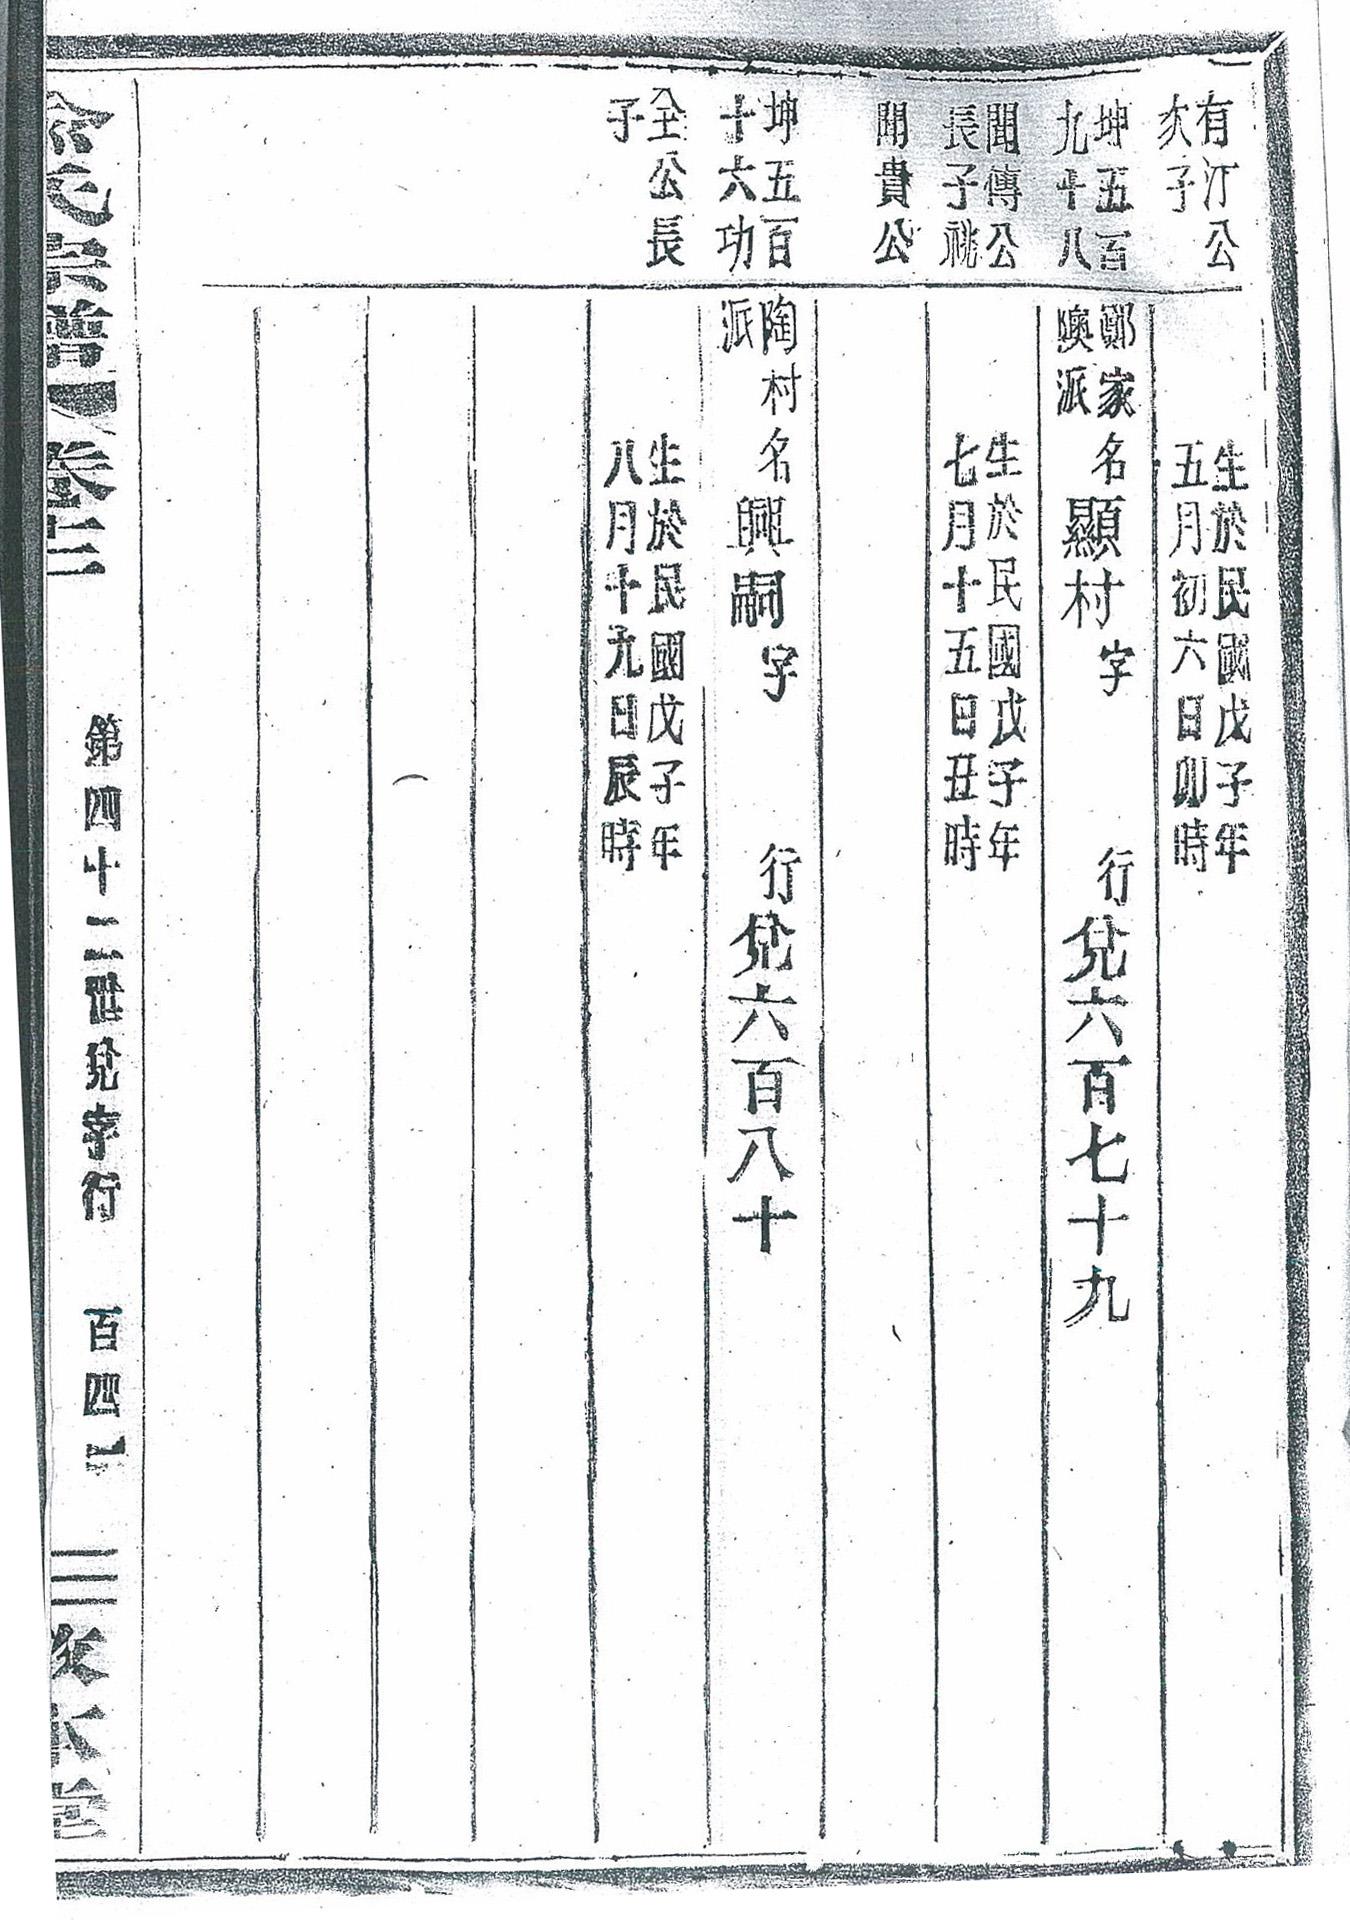 有汀公
次子
生於民國戊子年
五月初六日卯時
坤五百
九十八
鄭家
隩派
名顯村字
行兌六百七十九
聞傳公
長子祧
生於民國戊子年
七月十五日丑時
聞貴公
坤五百
十六功
陶村
派
名興嗣字
行兌六百八十
全公長
子
生於民國戊子年
八月十九日辰時
氏宗譜 卷十二
第四十二世兌字行
百四
本堂